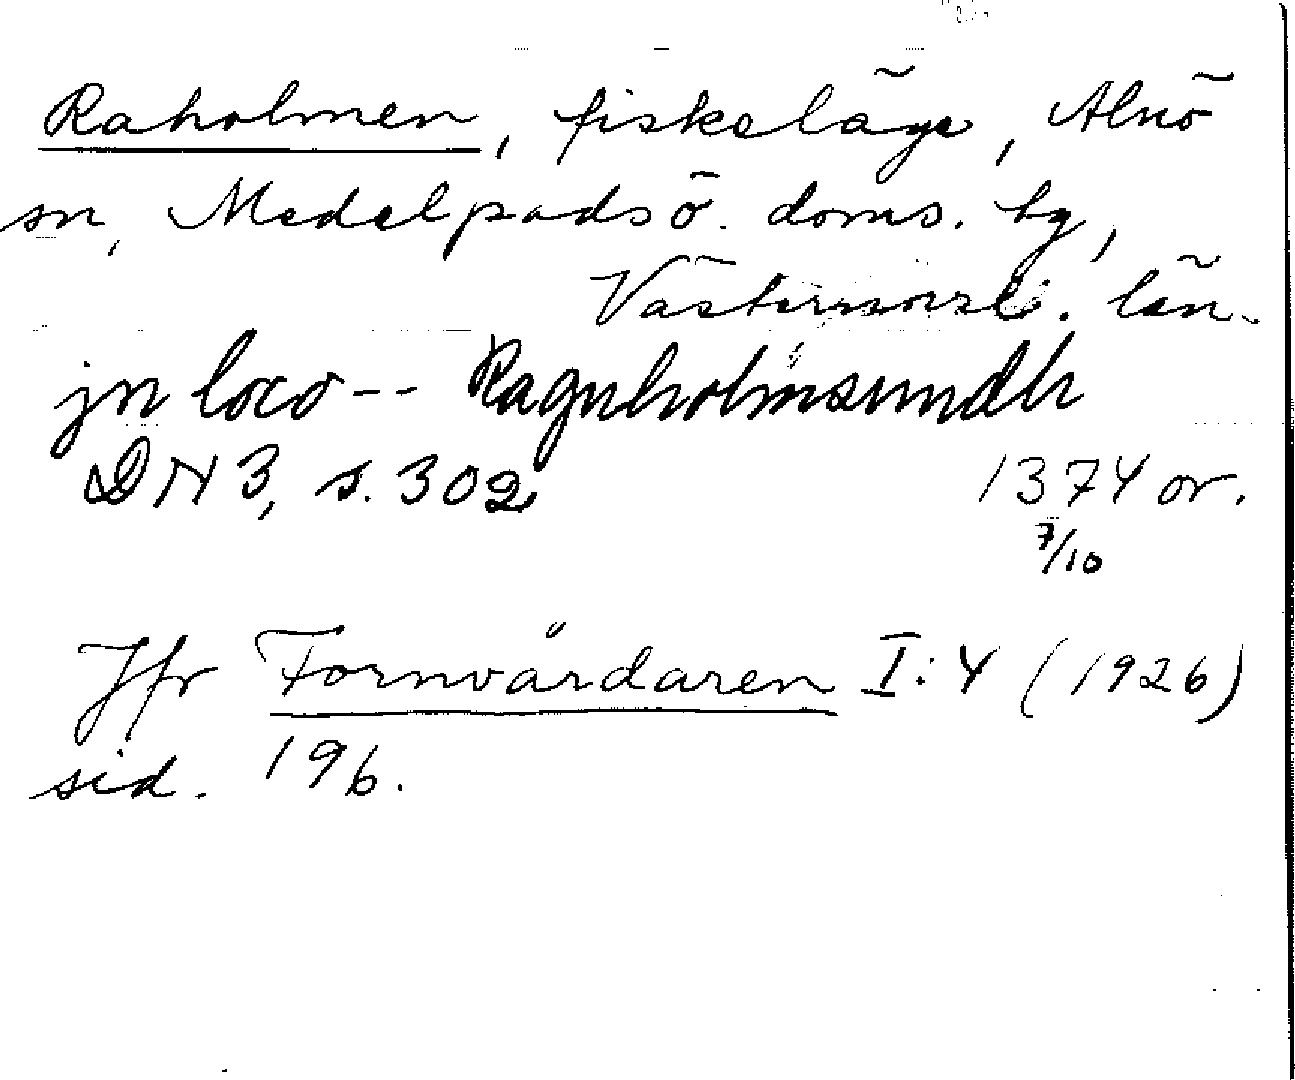 Raholmen, fiskeläge, Alnö
sn, Medelpads ö. doms. hg,
Västernorrl. län.
jn loco -- Ragnholmsundh
DN 3, s. 302 1374 or.
7/10
Jfr Fornvårdaren I:4 (1926)
sid. 196.